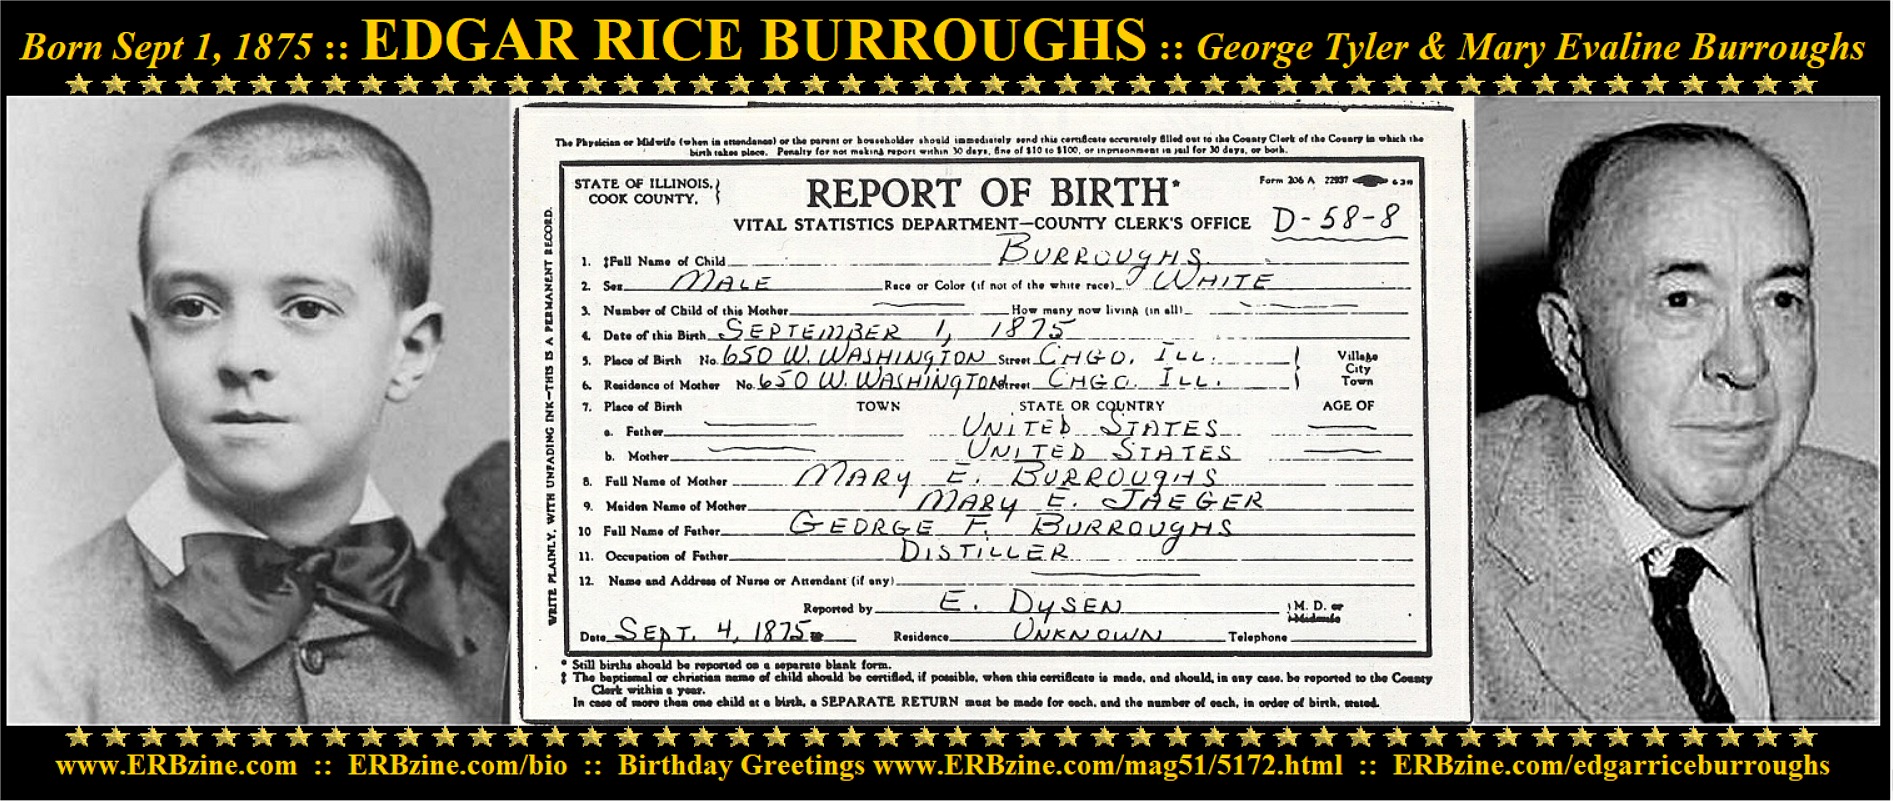 Born Sept 1, 1875 :: EDGAR RICE BURROUGHS :: George Tyler & Mary Evaline Burroughs
The Physician or Midwife (when in attendance) or the parent or householder should immediately send this certificate accurately filled out to the County Clerk of the County in which the
birth takes place. Penalty for not making report within 30 days, fine of $10 to $100, or inprisonment in jail for 30 days, or both.
WRITE PLAINLY, WITH UNFADING INK—THIS IS A PERMANENT RECORD.
STATE OF ILLINOIS, }
COOK COUNTY.
REPORT OF BIRTH*
Form 206 A 22937
VITAL STATISTICS DEPARTMENT—COUNTY CLERK'S OFFICE
D-58-8
1. ‡Full Name of Child BURROUGHS
2. Sex MALE Race or Color (if not of the white race) WHITE
3. Number of Child of this Mother How many now living (in all)
4. Date of this Birth SEPTEMBER 1, 1875
5. Place of Birth No. 650 W. WASHINGTON Street CHGO. ILL.
6. Residence of Mother No. 650 W. WASHINGTON Street CHGO. ILL.
Village
City
Town
7. Place of Birth TOWN STATE OR COUNTRY AGE OF
a. Father UNITED STATES
b. Mother UNITED STATES
8. Full Name of Mother MARY E. BURROUGHS
9. Maiden Name of Mother MARY E. JAEGER
10 Full Name of Father GEORGE F. BURROUGHS
11. Occupation of Father DISTILLER
12. Name and Address of Nurse or Attendant (if any)
Reported by E. DYSEN M. D. or
Midwife
Date SEPT. 4, 1875 Residence UNKNOWN Telephone
* Still births should be reported on a separate blank form.
‡ The baptismal or christian name of child should be certified, if possible, when this certificate is made, and should, in any case, be reported to the County
Clerk within a year.
In case of more than one child at a birth, a SEPARATE RETURN must be made for each, and the number of each, in order of birth, stated.
www.ERBzine.com :: ERBzine.com/bio :: Birthday Greetings www.ERBzine.com/mag51/5172.html :: ERBzine.com/edgarriceburroughs